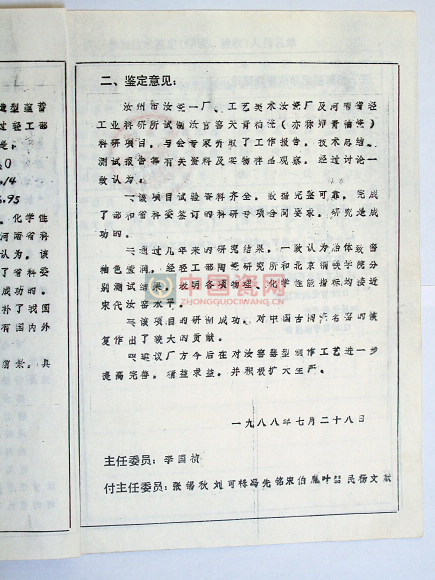 造型蕴蓄
过轻工部
0
.14
.95
化学性
河南省科
认为，该
了省科委
成功的。
补了我国
有国内外
前景，具
二、鉴定意见：
汝州市汝瓷一厂、工艺美术汝瓷厂及河南省轻
工业科研所试测汝官瓷天青釉瓷（亦称卵青釉瓷）
科研项目，与会专家听取了工作报告，技术总结，
测试报告等有关资料及实物样品观察。经过讨论一
致认为。
该项目试验资料齐全，数据完整可靠，完成
了部和省科委签订的科研专项合同要求，研究是成
功的。
通过几年来的研究结果，一致认为胎体致密
釉色莹润，经轻工部陶瓷研究所和北京钢铁学院分
别测试结果，说明各项物理、化学性能指标均接近
宋代汝窑水平。
该项目的研测成功，对中国古陶瓷名窑的恢
复作出了较大的贡献。
建议厂方今后在对汝窑器型制作工艺进一步
提高完善，精益求益，并积极扩大生产。
一九八八年七月二十八日
主任委员：李国桢
付主任委员：张绪秋刘可栋冯先铭宋伯胤叶喆民杨文献
中国瓷网
ZHONGGUOCIWANG.COM